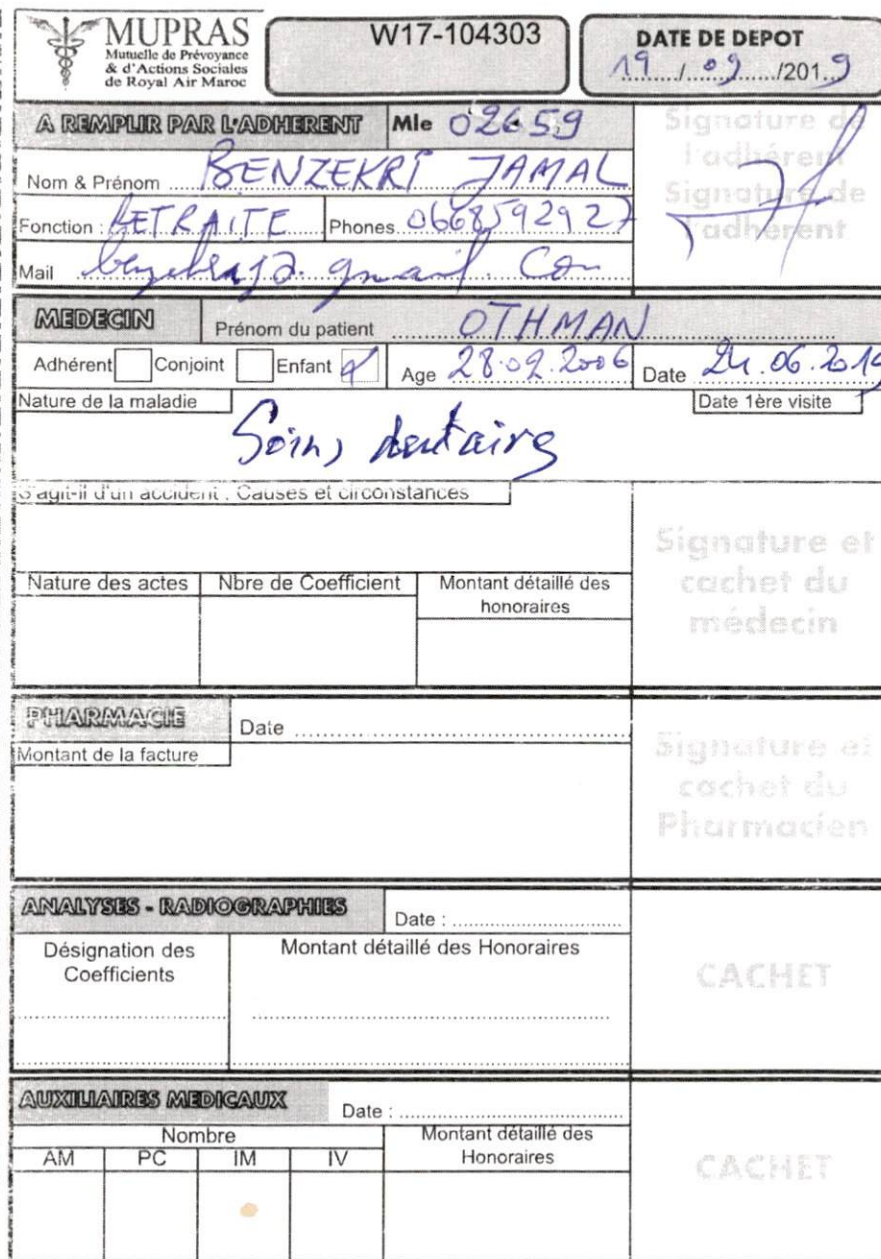 MUPRAS
Mutuelle de Prévoyance
& d'Actions Sociales
de Royal Air Maroc
W17-104303
DATE DE DEPOT
19 / 09 /2019
A REMPLIR PAR L'ADHERENT
Mle 02659
Nom & Prénom BENZEKRI JAMAL
Fonction : RETRAITE Phones 0668592927
Mail gmail. Com
Signature de
l'adhérent
Signature de
l'adhérent
MEDECIN
Prénom du patient OTHMAN
Adhérent Conjoint Enfant Age 28.02.2006 Date 24.06.2019
Nature de la maladie
Date 1ère visite
Soins dentaires
S'agit-il d'un accident : Causes et circonstances
Nature des actes Nbre de Coefficient Montant détaillé des
honoraires
Signature et
cachet du
médecin
PHARMACIE
Date
Montant de la facture
Signature et
cachet du
Pharmacien
ANALYSES - RADIOGRAPHIES
Date :
Désignation des
Coefficients
Montant détaillé des Honoraires
CACHET
AUXILIAIRES MEDICAUX
Date :
Nombre
Montant détaillé des
Honoraires
AM PC IM IV
CACHET